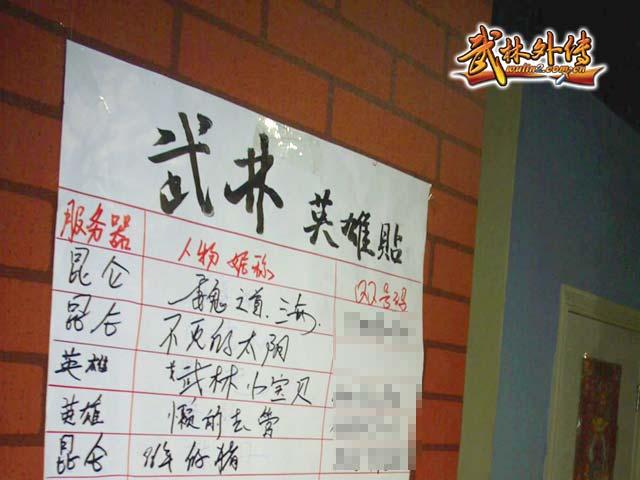 武林外传
wulin2.com.cn
武林 英雄貼
服务器 人物妮称 QQ号码
昆仑 魏之首.三少.
昆仑 不灭的太阳
英雄 武林小宝贝
英雄 懒的去管
昆仑 好猪